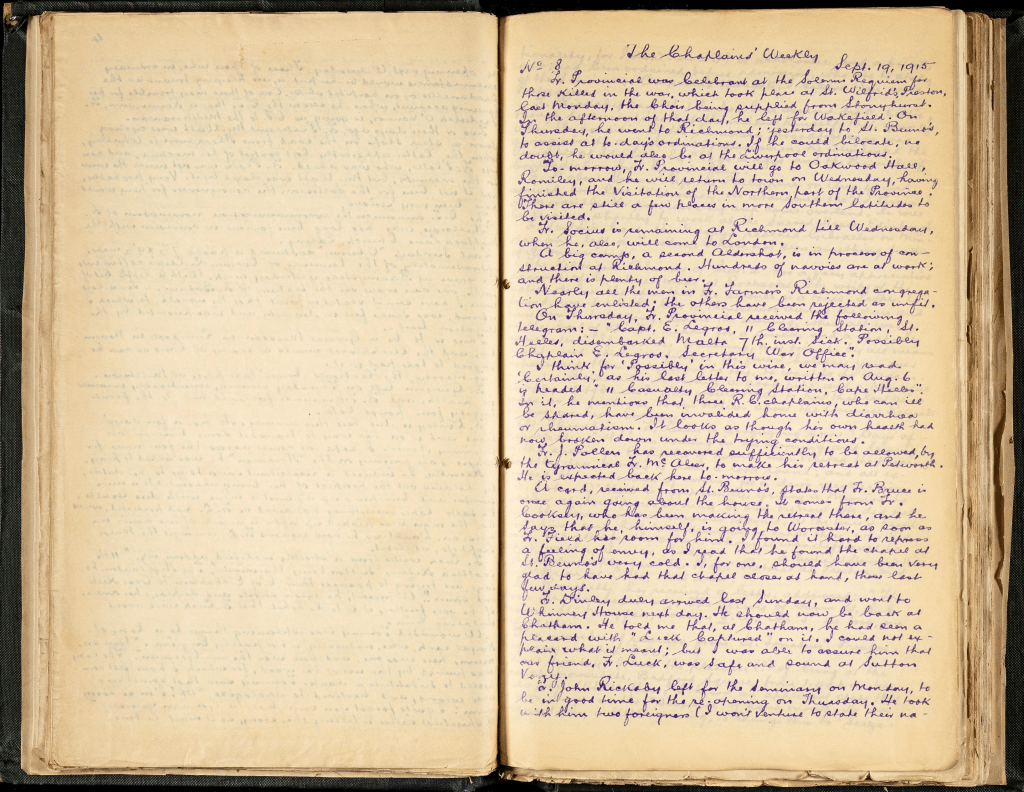 'The Chaplains' Weekly
Nº 8 Sept. 19, 1915
Fr. Provincial was Celebrant at the Solemn Requiem for
those killed in the war, which took place at St. Wilfrid's, Preston,
last Monday, the Choir being supplied from Stonyhurst.
In the afternoon of that day, he left for Wakefield. On
Thursday, he went to Richmond; yesterday to St. Beuno's,
to assist at to-day's ordinations. If he could bilocate, no
doubt, he would also be at the Liverpool ordinations.
To-morrow, Fr. Provincial will go to Oakwood Hall,
Romiley, and he will return to town on Wednesday, having
finished the Visitation of the Northern part of the Province.
There are still a few places in more Southern latitudes to
be visited.
Fr. Socius is remaining at Richmond till Wednesday,
when he, also, will come to London.
A big camp, a second Aldershot, is in process of con-
struction at Richmond. Hundreds of navvies are at work;
and there is plenty of beer.
Nearly all the men in Fr. Farmer's Richmond congrega-
tion have enlisted; the others have been rejected as unfit.
On Thursday, Fr. Provincial received the following
telegram: – "Capt. E. Legros, 11 Clearing Station, St.
Helles, disembarked Malta 7th. inst. Sick. Possibly
Chaplain E. Legros. Secretary War Office".
I think for 'Possibly' in this wire, we may read
'Certainly', as his last letter to me, written on Aug. 6
is headed "11 Casualty Clearing Station, Cape Helles".
In it, he mentions that three R.C. chaplains, who can ill
be spared, have been invalided home with diarrhoea
or rheumatism. It looks as though his own health had
now broken down under the trying conditions.
Fr. J. Pollen has recovered sufficiently to be allowed, by
the tyrannical Fr. McAleer, to make his retreat at Petworth.
He is expected back here to-morrow.
A card, received from St. Beuno's, states that Fr. Bruce is
once again going about the house. It comes from Fr.
Cooksey, who has been making the retreat there, and he
says that he, himself, is going to Worcester, as soon as
Fr. Field has room for him. I found it hard to repress
a feeling of envy, as I read that he found the chapel at
St. Beuno's very cold. I, for one, should have been very
glad to have had that chapel close at hand, these last
few days.
Fr. Dinley duly arrived last Sunday, and went to
Whinney House next day. He should now be back at
Chatham. He told me that, at Chatham, he had seen a
placard with "Luck Captured" on it. I could not ex-
plain what it meant; but I was able to assure him that
our friend, Fr. Luck, was safe and sound at Sutton
Veny.
Fr. John Rickaby left for the Seminary on Monday, to
be in good time for the re-opening on Thursday. He took
with him two foreigners (I won't venture to state their na-